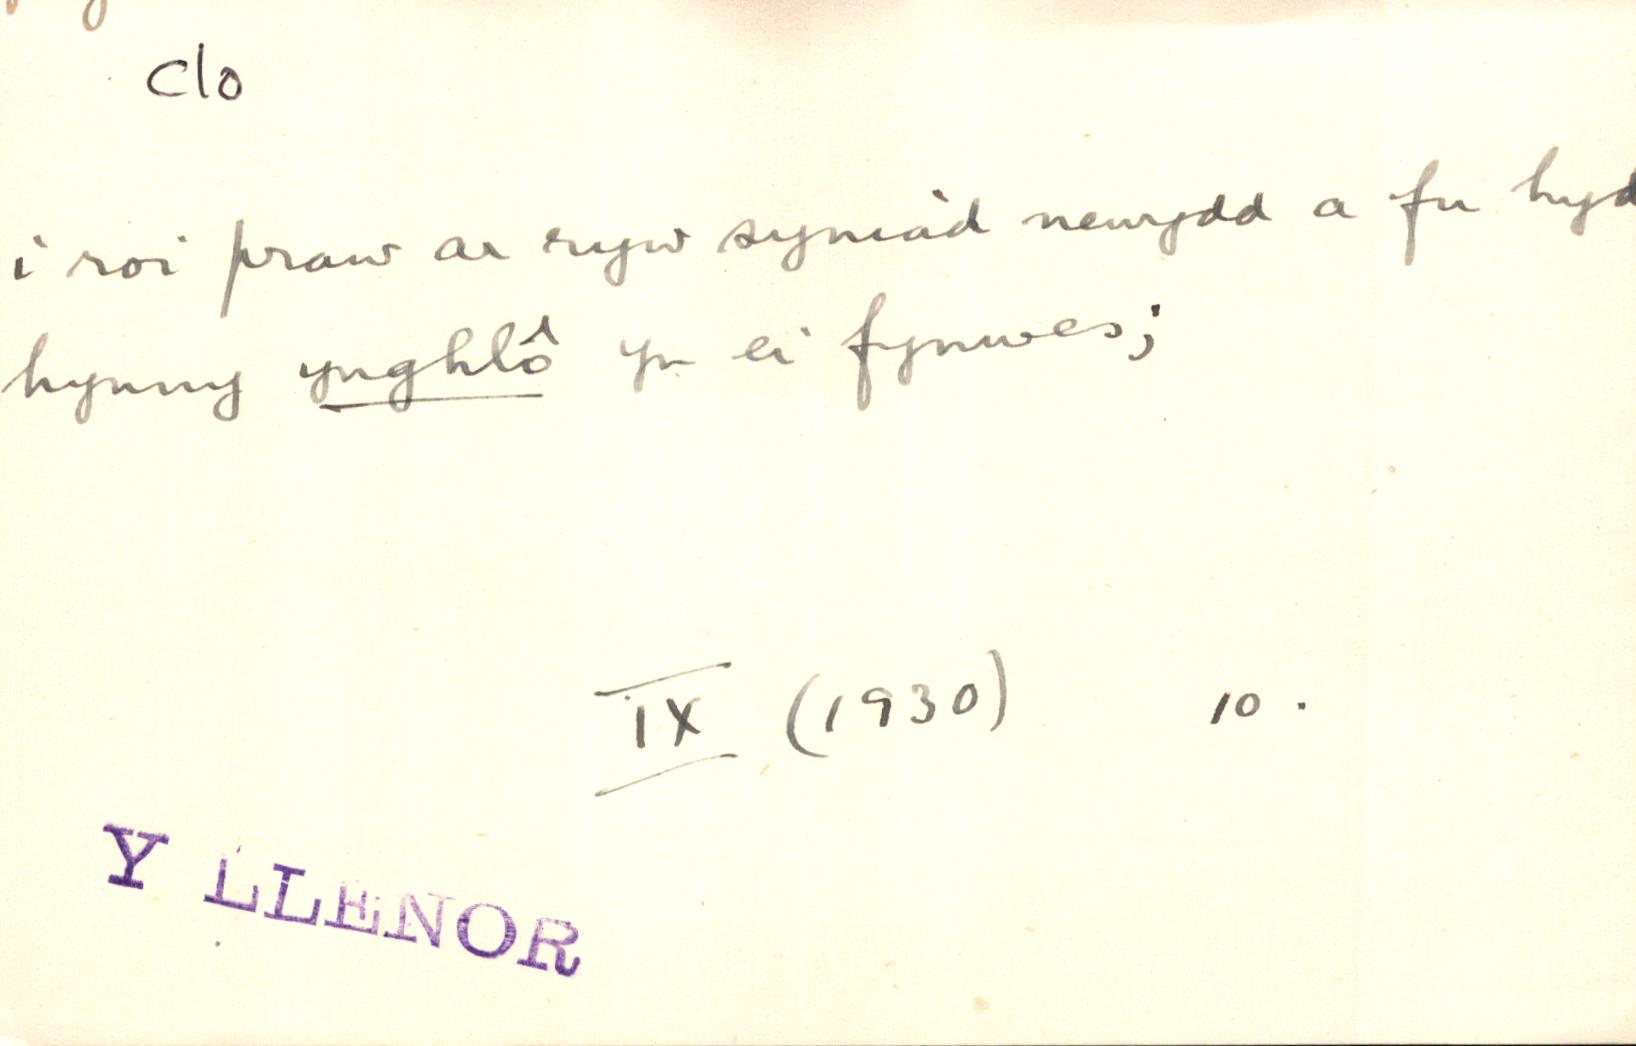 clo
i roi praw ar ryw syniad newydd a fu hyd
hynny ynghlô yn ei fynwes;
IX (1930) 10.
Y LLENOR